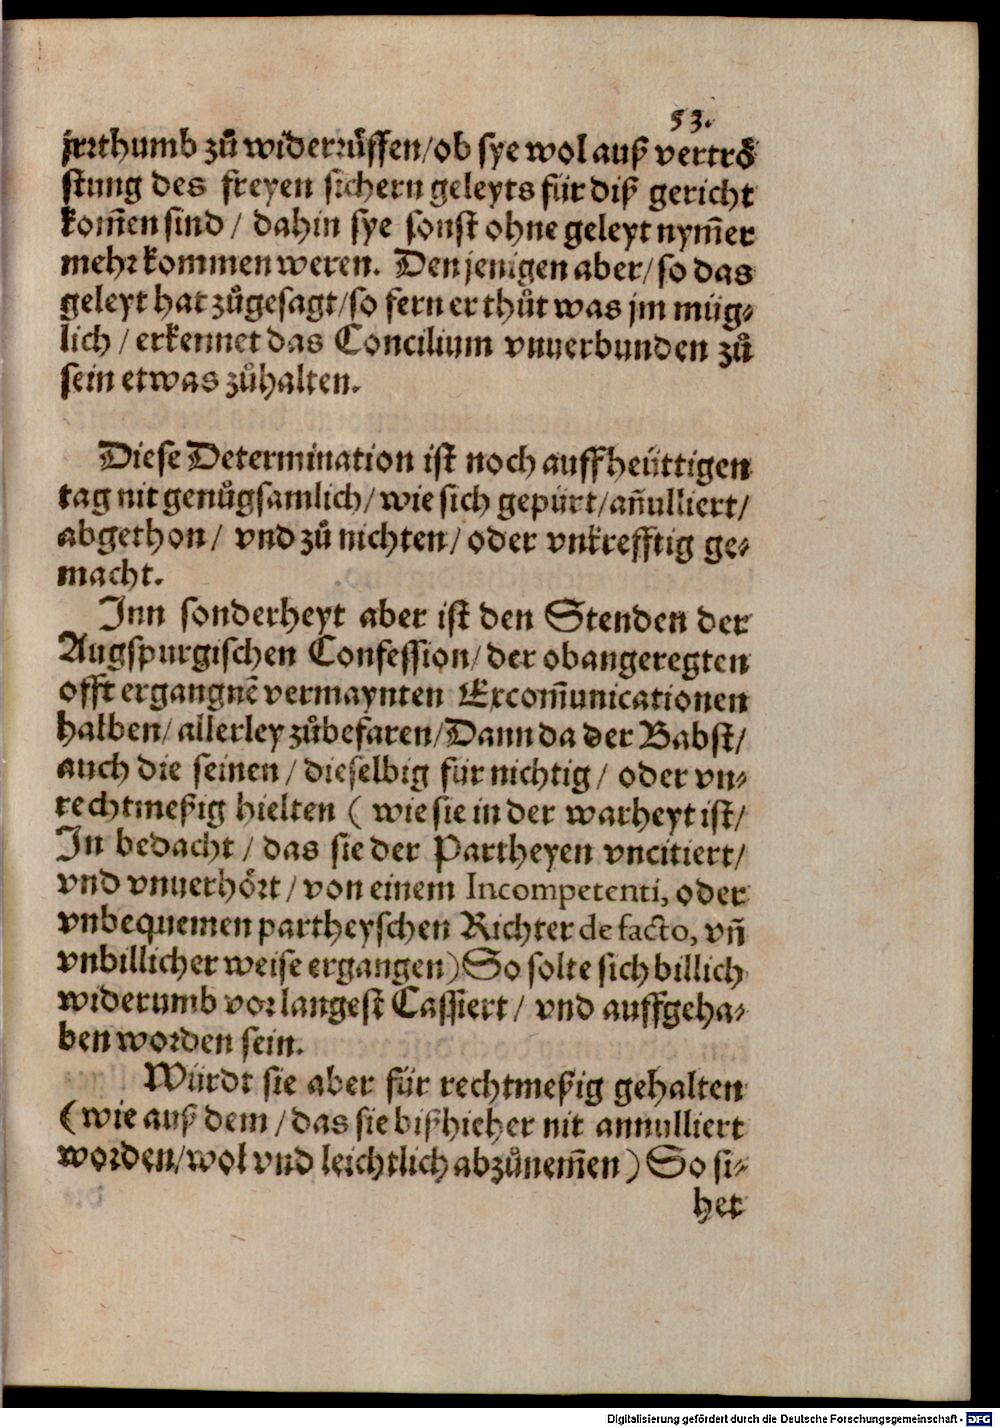 53.
jrrthumb zů widerrůffen/ob sye wol auß vertrö
stung des freyen sichern geleyts für diß gericht
kom̃en sind / dahin sye sonst ohne geleyt nym̃er
mehr kommen weren. Den jenigen aber/ so das
geleyt hat zůgesagt/so fern er thůt was jm müg⸗
lich / erkennet das Concilium vnuerbunden zů
sein etwas zůhalten.
Diese Determination ist noch auff heüttigen
tag nit genůgsamlich/ wie sich gepürt/an̄ulliert/
abgethon/ vnd zů nichten/ oder vnkrefftig ge⸗
macht.
Inn sonderheyt aber ist den Stenden der
Augspurgischen Confession/ der obangeregten
offt ergangnẽ vermaynten Excom̄unicationen
halben/ allerley zůbefaren/Dann da der Babst/
auch die seinen / dieselbig für nichtig / oder vn⸗
rechtmeßig hielten ( wie sie in der warheyt ist/
In bedacht / das sie der Partheyen vncitiert/
vnd vnuerhört / von einem Incompetenti, oder
vnbequemen partheyschen Richter de facto, vñ
vnbillicher weise ergangen) So solte sich billich
widerumb vor langest Cassiert / vnd auffgeha⸗
ben worden sein.
Würdt sie aber für rechtmeßig gehalten
(wie auß dem / das sie bißhieher nit annulliert
worden/wol vnd leichtlich abzůnem̃en) So si⸗
het
Digitalisierung gefördert durch die Deutsche Forschungsgemeinschaft - DFG